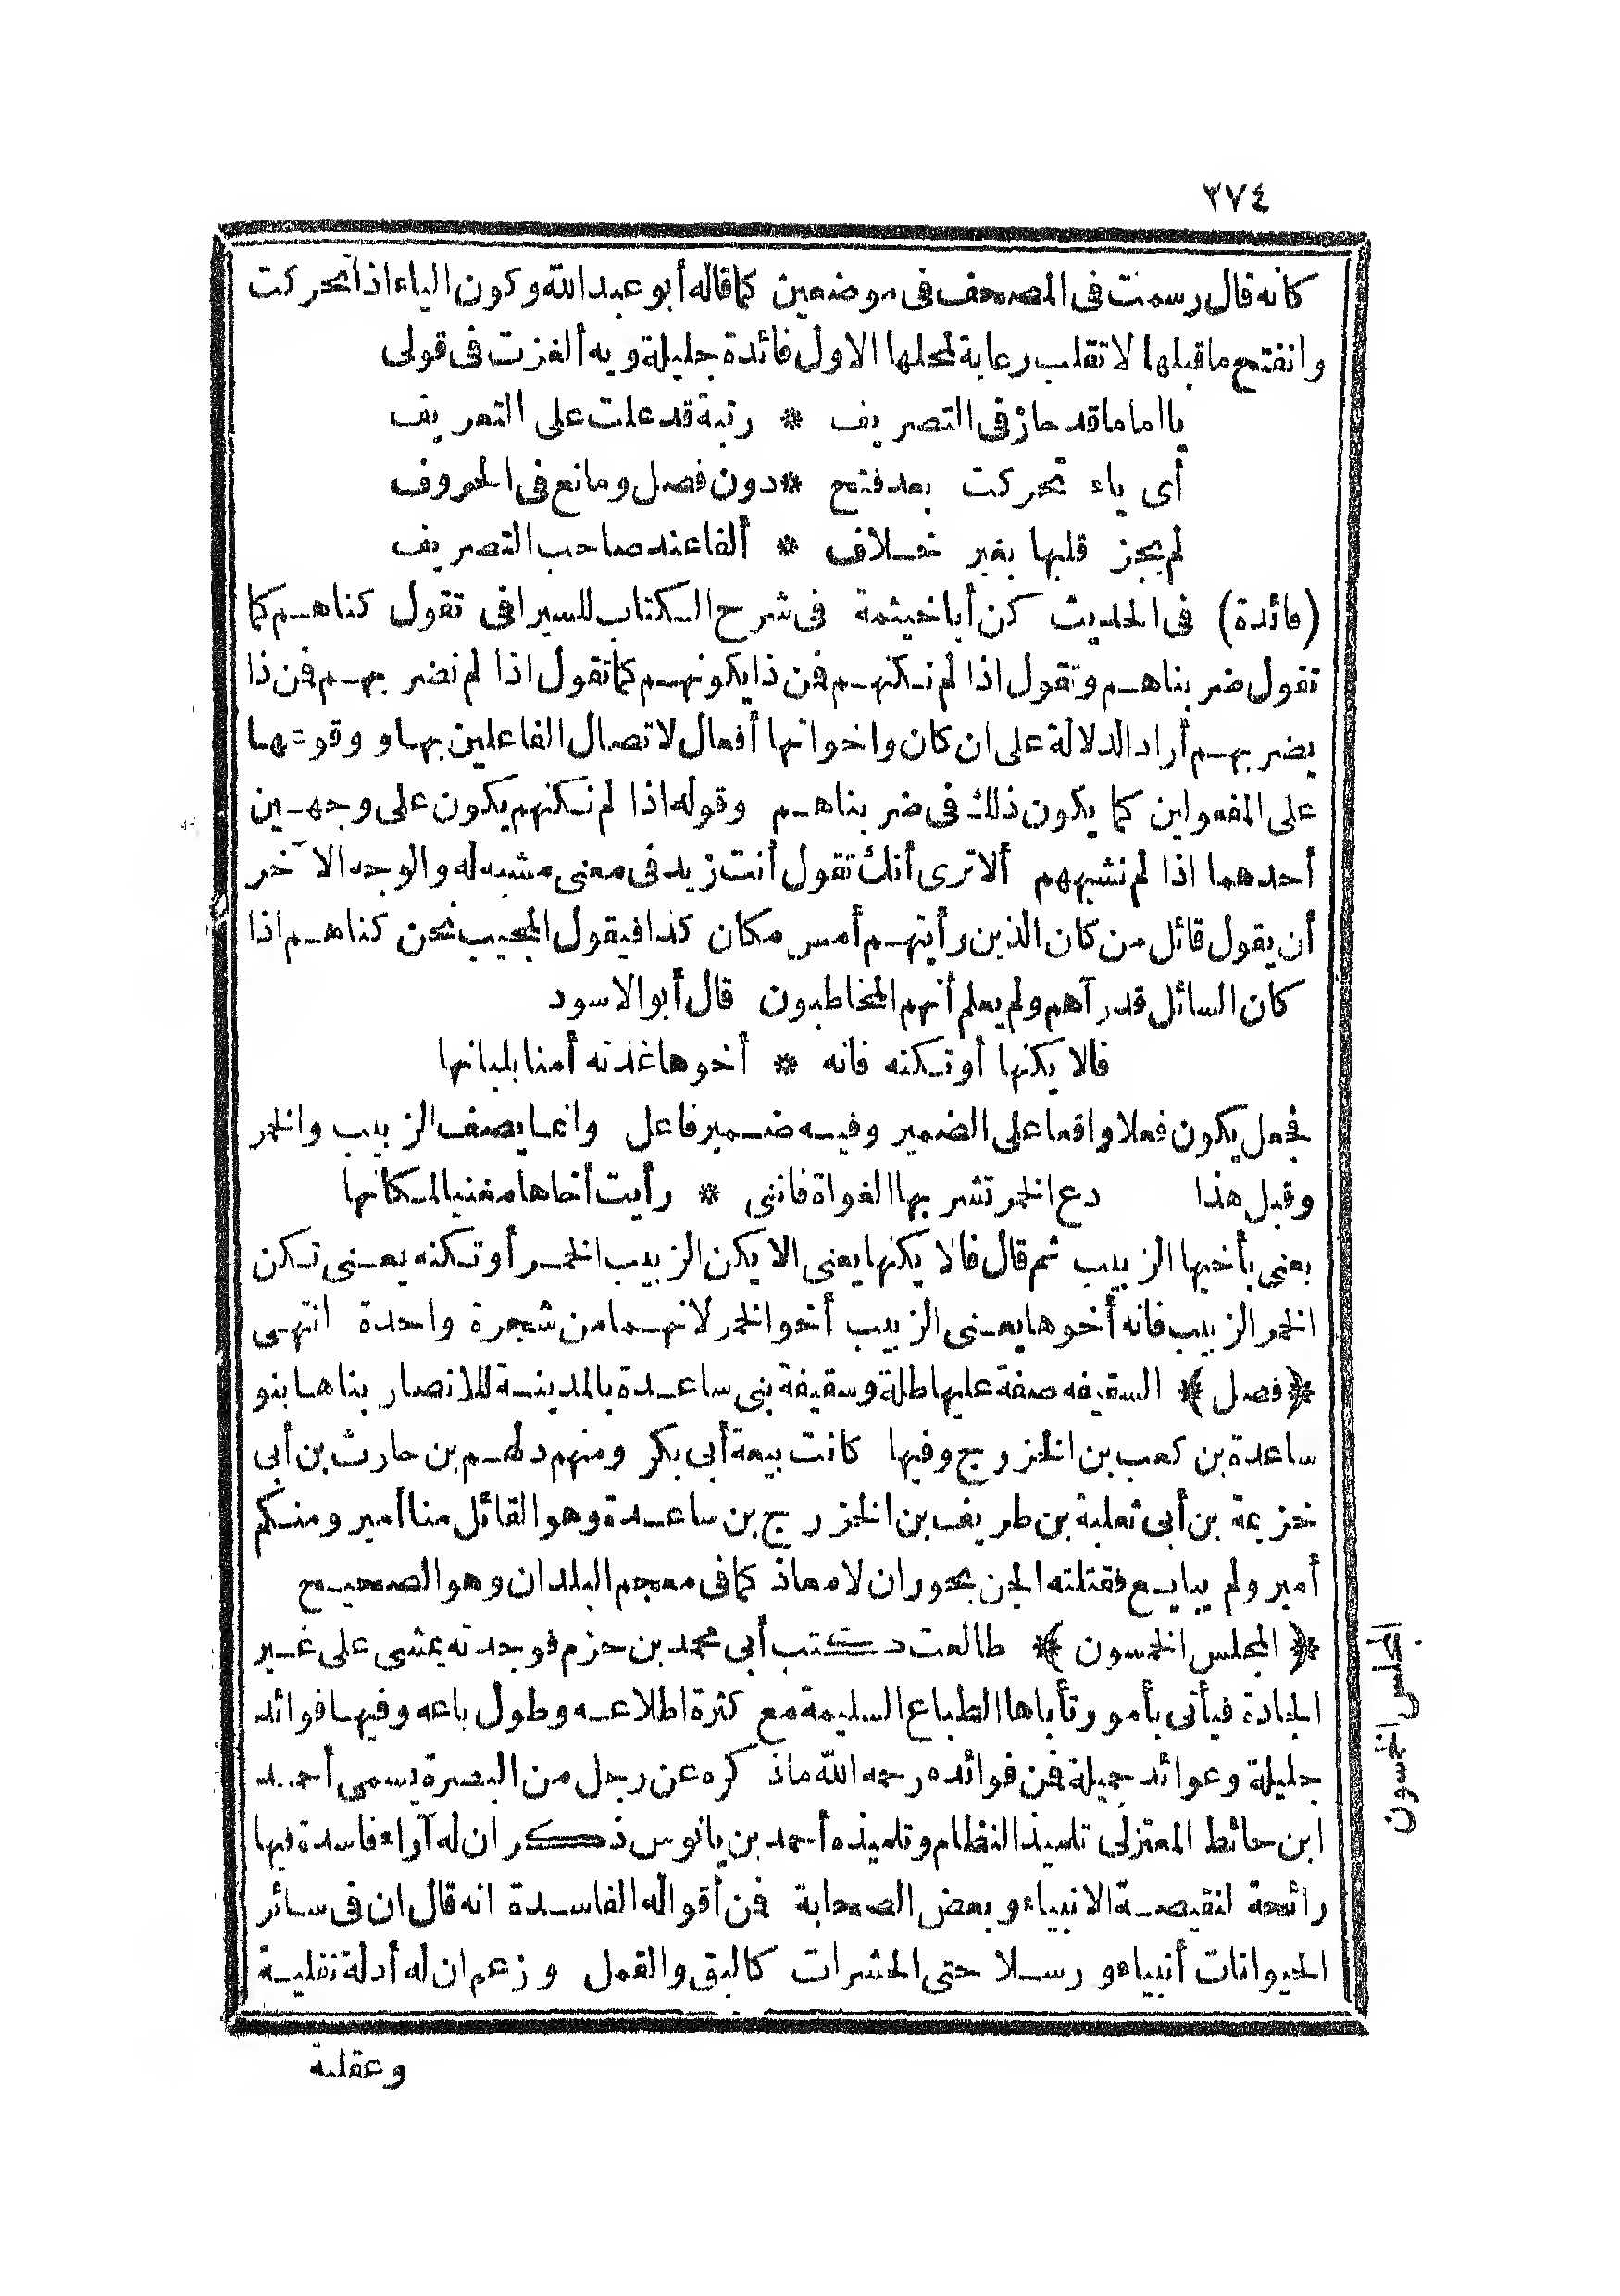 ٣٧٤
كانه قال رسمت فى المصحف فى موضعين كما قاله أبو عبد الله وكون الياء اذا تحركت
وانفتح ما قبلها لا تقلب رعاية لمحلها الاول فائدة جليلة وبه ألغزت فى قولى
يا اماما قد حاز فى التصريف * رتبة قد علت على التعريف
أى ياء تحركت بعد فتح * دون فصل ومانع فى الحروف
لم يجز قلبها بغير خلاف * ألفا عند صاحب التصريف
(فائدة) فى الحديث كن أبا خيثمة فى شرح الكتاب للسيرافى تقول كناهم كما
تقول ضربناهم وتقول اذا لم نكنهم فمن ذا يكونهم كما تقول اذا لم نضربهم فمن ذا
يضربهم أراد الدلالة على ان كان واخواتها أفعال لاتصال الفاعلين بها ووقوعها
على المفعولين كما يكون ذلك فى ضربناهم وقوله اذا لم نكنهم يكون على وجهين
أحدهما اذا لم نشبههم ألا ترى أنك تقول أنت زيد فى معنى مشبه له والوجه الآخر
أن يقول قائل من كان الذين رأيتهم أمس مكان كذا فيقول المجيب نحن كناهم اذا
كان السائل قد رآهم ولم يعلم أنهم المخاطبون قال أبو الاسود
فالا يكنها أو تكنه فانه * أخوها غذته أمنا بلبانها
فجعل يكون فعلا واقعا على الضمير وفيه ضمير فاعل وانما يصف الزبيب والخمر
وقبل هذا دع الخمر تشربها الغواة فاننى * رأيت أخاها مغنيا لمكانها
يعنى بأخيها الزبيب ثم قال فالا يكنها يعنى الا يكن الزبيب الخمر أو تكنه يعنى تكن
الخمر الزبيب فانه أخوها يعنى الزبيب أخو الخمر لانهما من شجرة واحدة انتهى
﴿فصل﴾ السقيفه صفة عليها ظلة وسقيفة بنى ساعدة بالمدينة للانصار بناها بنو
ساعدة بن كعب بن الخزرج وفيها كانت بيعة أبى بكر ومنهم دلهم بن حارث بن أبى
خزيمة بن أبى ثعلبة بن طريف بن الخزرج بن ساعدة وهو القائل منا أمير ومنكم
أمير ولم يبايع فقتلته الجن بحوران لا معاذ كما فى معجم البلدان وهو الصحيح
﴿المجلس الخمسون﴾ طالعت كتب أبى محمد بن حزم فوجدته يمشى على غير
الجادة فيأتى بأمور تأباها الطباع السليمة مع كثرة اطلاعه وطول باعه وفيها فوائد
جليلة وعوائد جميلة فمن فوائده رحمه الله ما ذكره عن رجل من البصرة يسمى أحمد
ابن حائط المعتزلى تلميذ النظام وتلميذه أحمد بن يانوس ذكر ان له آراء فاسدة فيها
رائحة لنقيصة الانبياء وبعض الصحابة فمن أقواله الفاسدة انه قال ان فى سائر
الحيوانات أنبياء ورسلا حتى الحشرات كالبق والقمل وزعم ان له أدلة نقلية
وعقلية
المجلس الخمسون